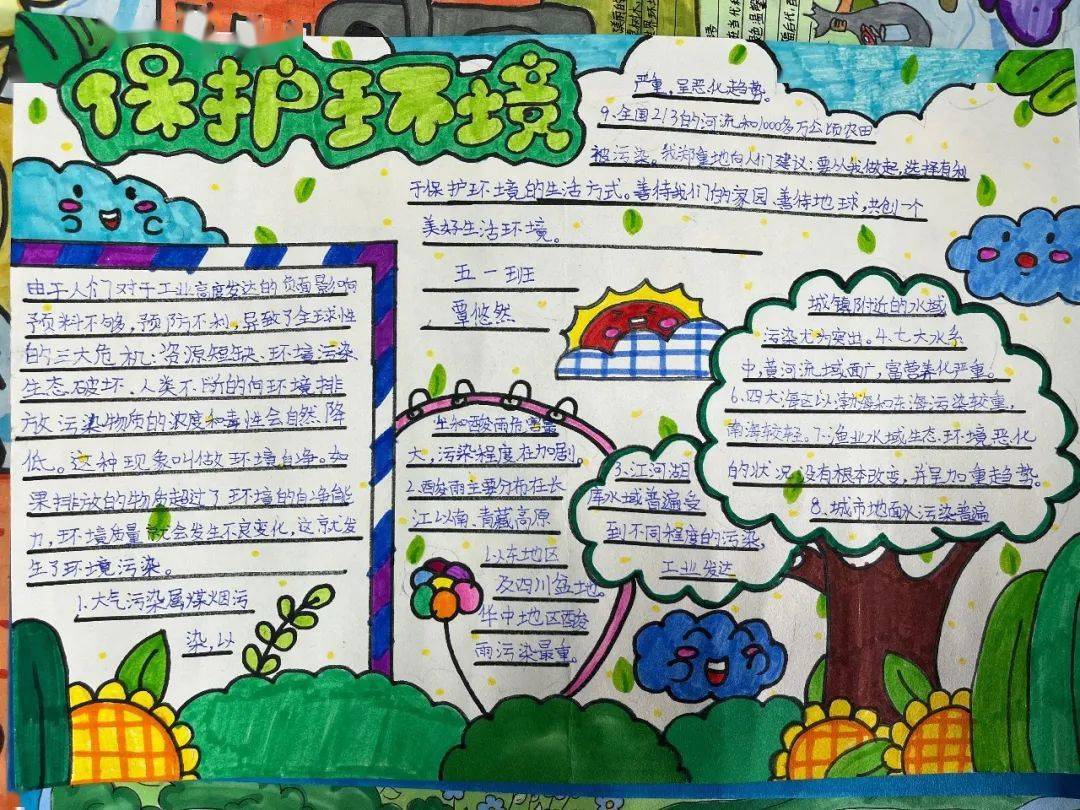 保护环境
由于人们对于工业高度发达的负面影响
预料不够，预防不利，导致了全球性
的三大危机：资源短缺、环境污染
生态破坏。人类不断的向环境排
放污染物质的浓度和毒性会自然降
低。这种现象叫做环境自净。如
果排放的物质超过了环境的自净能
力，环境质量就会发生不良变化，这就发
生了环境污染。
1.大气污染属煤烟污
染，以
尘和酸雨危害最
大，污染程度在加剧。
2.酸雨主要分布在长
江以南、青藏高原
以东地区
及四川盆地。
华中地区酸
雨污染最重。
3.江河湖
库水域普遍受
到不同程度的污染，
工业发达
城镇附近的水域
污染尤为突出。4.七大水系
中，黄河流域面广，富营养化严重。
6.四大海区以渤海和东海污染较重，
南海较轻。7.渔业水域生态环境恶化
的状况没有根本改变，并呈加重趋势。
8.城市地面水污染普遍
严重，呈恶化趋势。
9.全国2/3的河流和1000多万公顷农田
被污染。我郑重地向人们建议：要从我做起，选择有利
于保护环境的生活方式。善待我们的家园、善待地球，共创一个
美好生活环境。
五一班
覃悠然